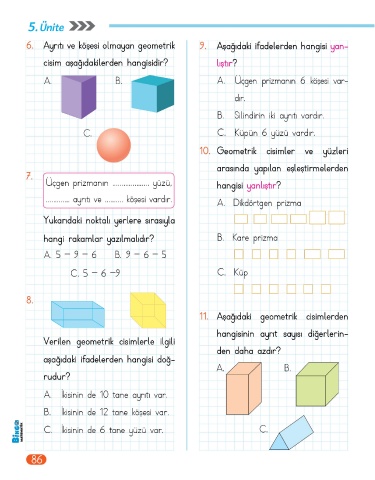 5. Ünite
6. Ayrıtı ve köşesi olmayan geometrik
cisim aşağıdakilerden hangisidir?
A. B.
C.
7.
Üçgen prizmanın ................. yüzü,
........... ayrıtı ve ......... köşesi vardır.
Yukarıdaki noktalı yerlere sırasıyla
hangi rakamlar yazılmalıdır?
A. 5 - 9 - 6 B. 9 - 6 - 5
C. 5 - 6 -9
8.
Verilen geometrik cisimlerle ilgili
aşağıdaki ifadelerden hangisi doğ-
rudur?
A. İkisinin de 10 tane ayrıtı var.
B. İkisinin de 12 tane köşesi var.
C. İkisinin de 6 tane yüzü var.
9. Aşağıdaki ifadelerden hangisi yan-
lıştır?
A. Üçgen prizmanın 6 köşesi var-
dır.
B. Silindirin iki ayrıtı vardır.
C. Küpün 6 yüzü vardır.
10. Geometrik cisimler ve yüzleri
arasında yapılan eşleştirmelerden
hangisi yanlıştır?
A. Dikdörtgen prizma
B. Kare prizma
C. Küp
11. Aşağıdaki geometrik cisimlerden
hangisinin ayrıt sayısı diğerlerin-
den daha azdır?
A. B.
C.
BİNGO
86